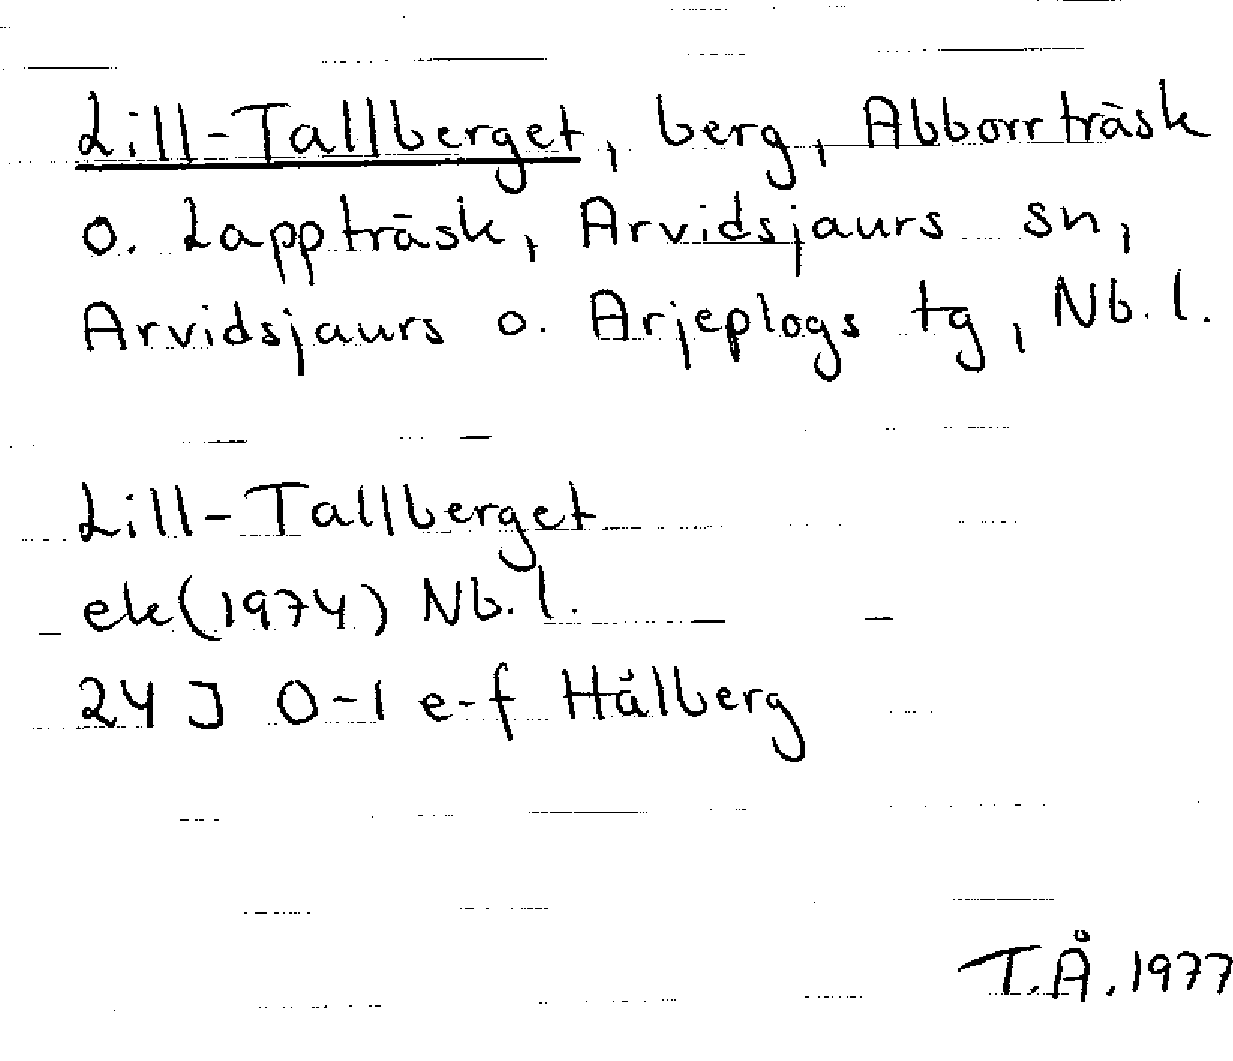 Lill-Tallberget, berg, Abborrträsk
o. Lappträsk, Arvidsjaurs sn,
Arvidsjaurs o. Arjeplogs tg, Nb. l.
Lill-Tallberget
ek(1974) Nb. l.
24 J 0-1 e-f Hålberg
T.Å. 1977